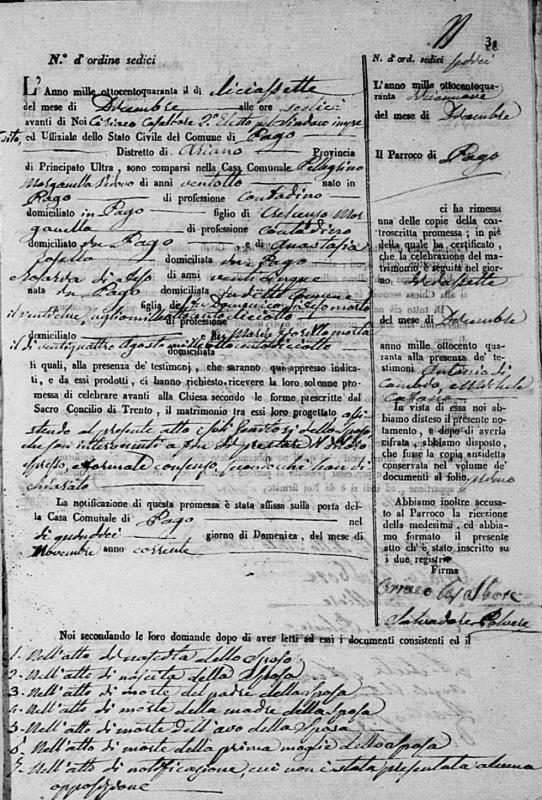 38
N.º d'ordine sedici
L'Anno mille ottocentoquaranta il dì diciassette
del mese di Dicembre alle ore sedici
avanti di Noi Ciriaco Casalbore 2.º Eletto pel Sindaco impe
dito, ed Uffiziale dello Stato Civile del Comune di Pago
Distretto di Ariano Provincia
di Principato Ultra, sono comparsi nella Casa Comunale Pellegrino
Morganella Vedovo di anni ventotto nato in
Pago di professione Contadino
domiciliato in Pago figlio di Crescenzo Mor
ganella di professione Contadino
domiciliato in Pago, e di Anastasia
domiciliata in Pago
di anni venticinque
nata in Pago domiciliata in detto Comune
figlia del fu Domenico morto
il ventitre Luglio mille ottocento diciotto
di professione
domiciliato e di Maria morta
il dì ventiquattro Agosto mille ottocento diciotto
domiciliata
li quali, alla presenza de' testimonj, che saranno qui appresso indica-
ti, e da essi prodotti, ci hanno richiesto ricevere la loro solenne pro-
messa di celebrare avanti alla Chiesa secondo le forme prescritte dal
Sacro Concilio di Trento, il matrimonio tra essi loro progettato assi
stendo al presente atto i genitori dello sposo
che son intervenuti a fin di prestare il di loro
espresso, e formale consenso, siccome chi han di
chiarato
La notificazione di questa promessa è stata affissa sulla porta del-
la Casa Comunale di Pago nel
dì quindici giorno di Domenica, del mese di
Novembre anno corrente
N. d'ord. sedici sedici
L'anno mille ottocentoqua-
ranta diciannove
del mese di Dicembre
Il Parroco di Pago
ci ha rimessa
una delle copie della con-
troscritta promessa; in piè
della quale ha certificato,
che la celebrazione del ma-
trimonio è seguita nel gior-
no diciassette
del mese di Dicembre
anno mille ottocento
quaranta alla presenza de' te-
stimoni Antonio di
e Michele
In vista di essa noi ab-
biamo disteso il presente no-
tamento, e dopo di averla
cifrata, abbiamo disposto,
che fusse la copia anzidetta
conservata nel volume de'
documenti al folio primo
Abbiamo inoltre accusato
al Parroco la ricezione
della medesima, ed abbia-
mo formato il presente
atto ch'è stato inscritto su
i due registri
Firma
Ciriaco Casalbore
Salvadore Polvere
Noi secondando le loro domande dopo di aver letti ad essi i documenti consistenti ed il
1. Nell'atto di nascita dello Sposo
2. Nell'atto di nascita della Sposa
3. Nell'atto di morte del padre della Sposa
4. Nell'atto di morte della madre della Sposa
5. Nell'atto di morte dell'avo della Sposa
6. Nell'atto di morte della prima moglie dello sposo
7. Nell'atto di notificazione, cui non è stata presentata alcuna
opposizione